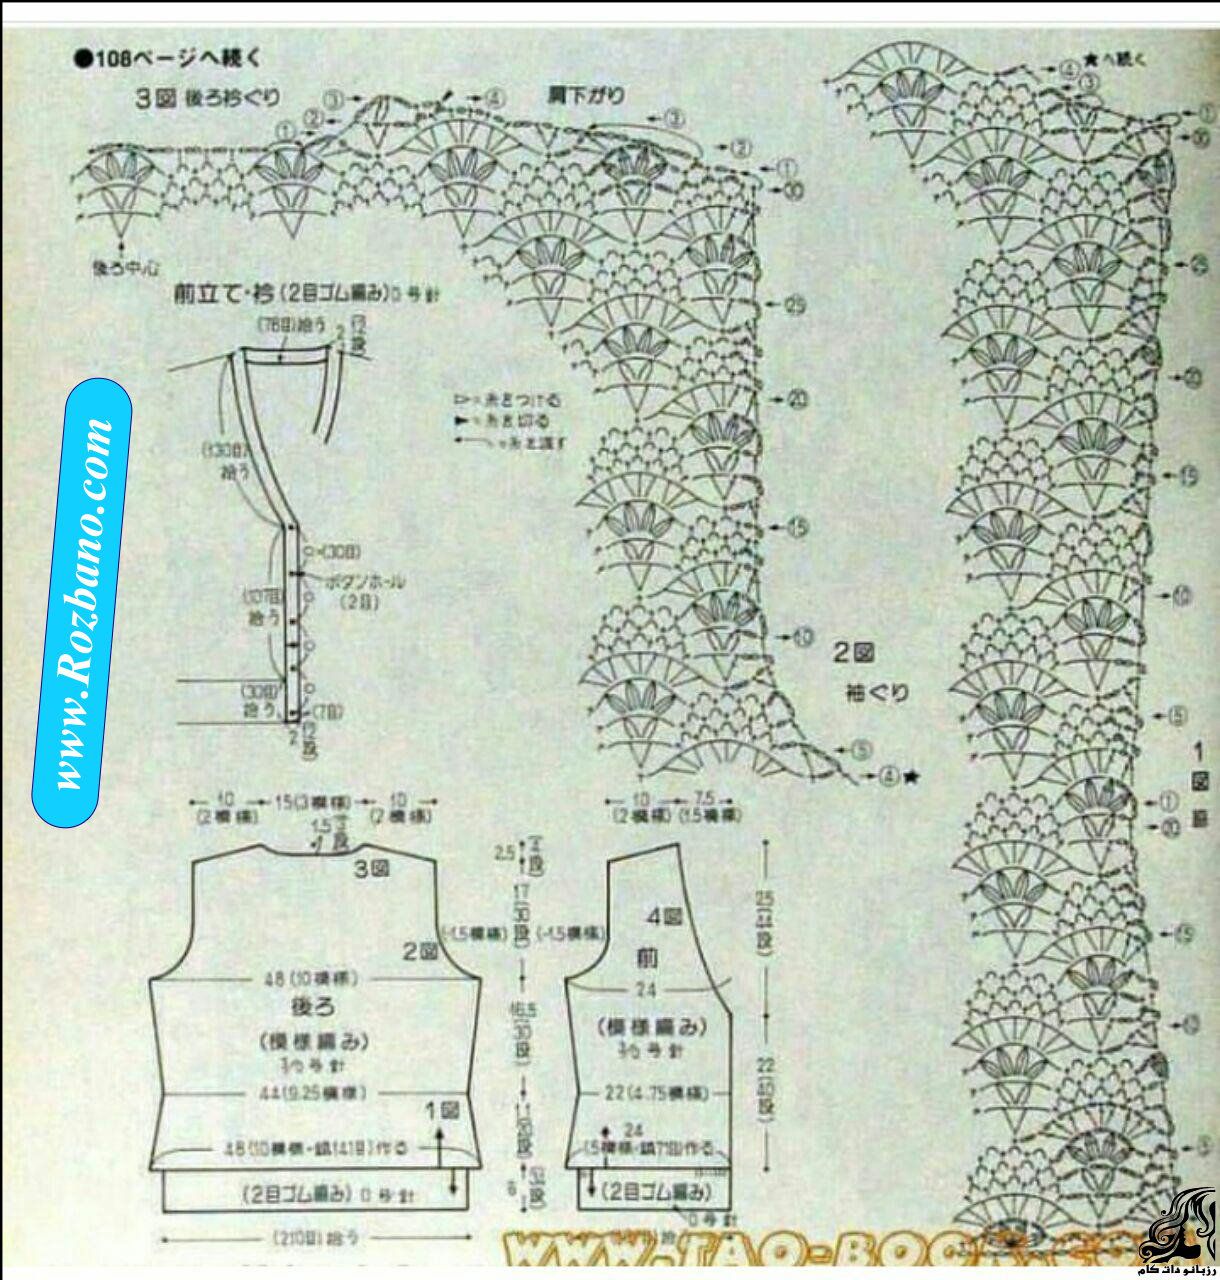 ●108ページへ続く
3図 後ろ衿ぐり
肩下がり
★へ続く
後ろ中心
前立て・衿(2目ゴム編み)0号針
(78目)拾う
(130目)
拾う
▷=糸をつける
▶=糸を切る
=糸を渡す
(30目)
ボタンホール
(2目)
(107目)
拾う
(30目)
拾う
(7目)
2図
袖ぐり
④★
1図
脇
10
(2模様)
15(3模様)
10
(2模様)
1.5
3図
2図
48(10模様)
後ろ
(模様編み)
3/0号針
44(9.25模様)
1図
48(10模様・鎖141目)作る
(2目ゴム編み)0号針
(210目)拾う
2.5
17
(30段)
(-1.5模様)
(-1.5模様)
16.5
(30段)
10
(2模様)
7.5
(1.5模様)
4図
前
24
(模様編み)
3/0号針
22(4.75模様)
24
(5模様・鎖71目)作る
(2目ゴム編み)
0号針
25
(44段)
22
(40段)
www.Rozbano.com
WWW.TAO-BOOK.CO
رزبانو دات کام